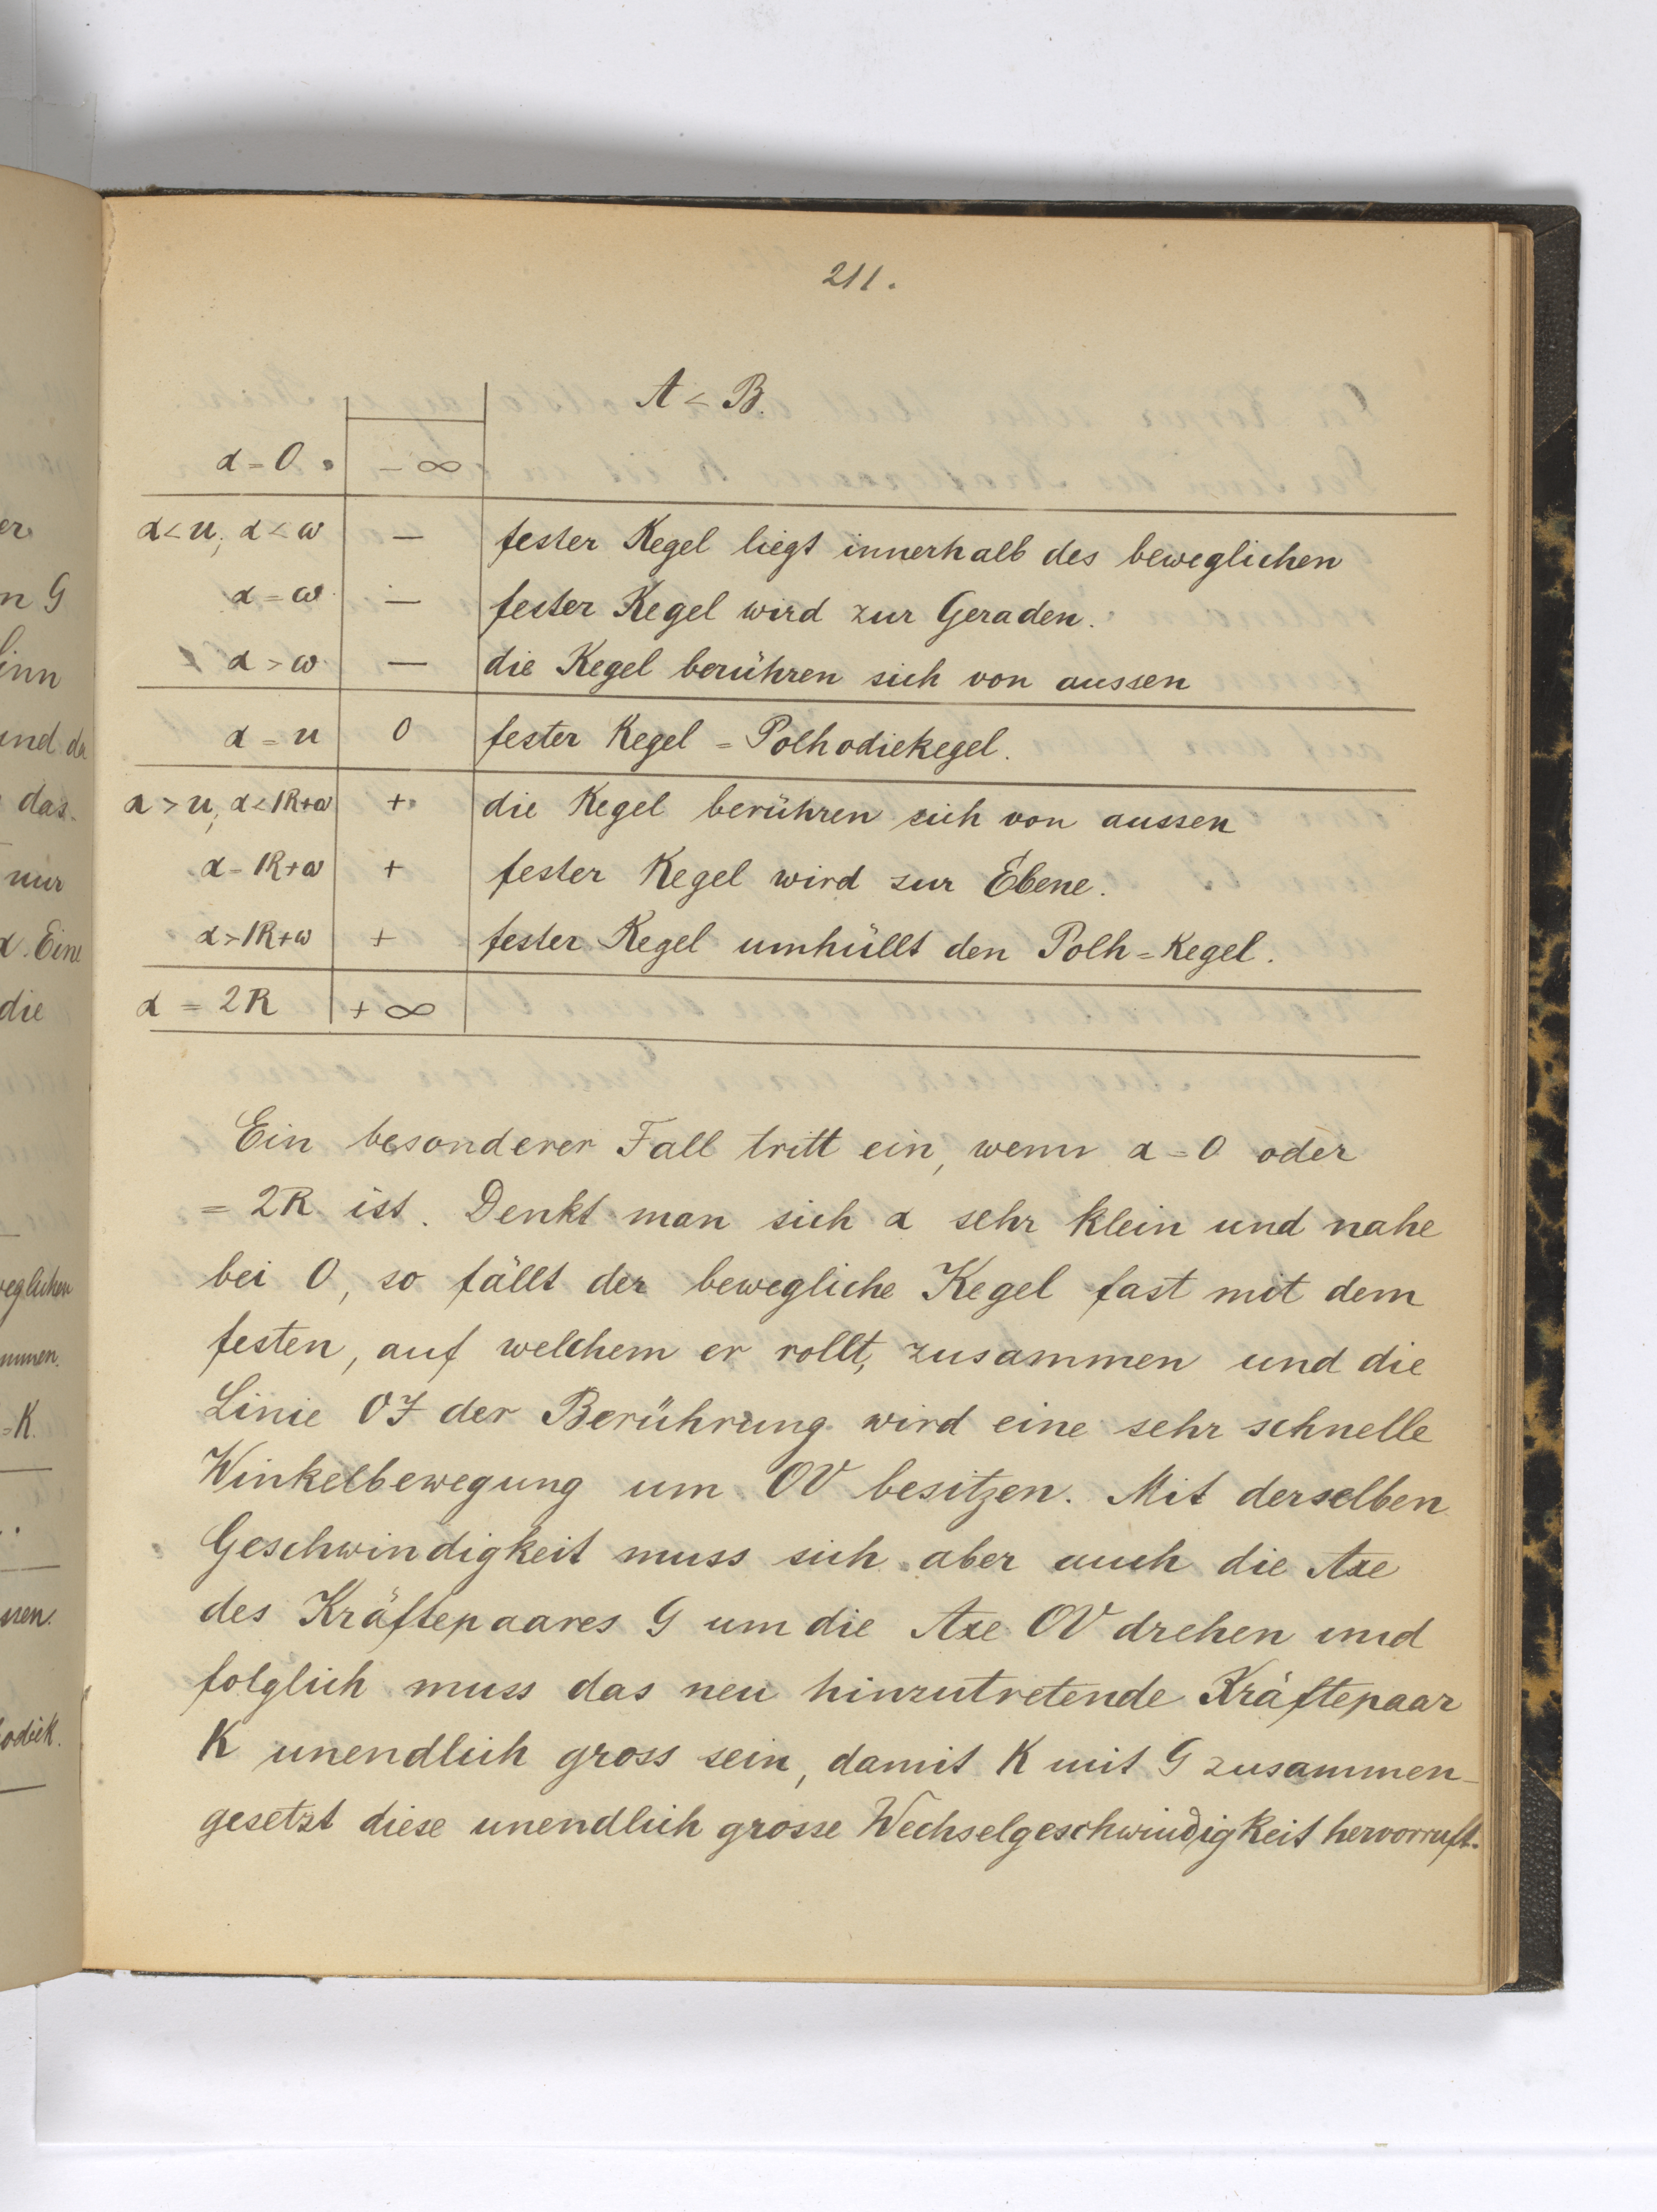 211.
A < B.
α = 0. − ∞
α < u, α < ω — fester Kegel liegt innerhalb des beweglichen
α = ω — fester Kegel wird zur Geraden.
α > ω — die Kegel berühren sich von aussen
α = u 0 fester Kegel = Polhodiekegel.
α > u, α < 1R+ω + die Kegel berühren sich von aussen
α = 1R+ω + fester Kegel wird zur Ebene.
α > 1R+ω + fester Kegel umhüllt den Polh=Kegel.
α = 2R + ∞
Ein besonderer Fall tritt ein, wenn α = 0 oder
= 2R ist. Denkt man sich α sehr klein und nahe
bei 0, so fällt der bewegliche Kegel fast mit dem
festen, auf welchem er rollt, zusammen und die
Linie OJ der Berührung wird eine sehr schnelle
Winkelbewegung um OV besitzen. Mit derselben
Geschwindigkeit muss sich aber auch die Axe
des Kräftepaares G um die Axe OV drehen und
folglich muss das neu hinzutretende Kräftepaar
K unendlich gross sein, damit K mit G zusammen-
gesetzt diese unendlich grosse Wechselgeschwindigkeit hervorruft.
er
n G
inn
und da
das
nur
α. Eine
die
weglichen
mmen.
=K.
ssen.
odiek.